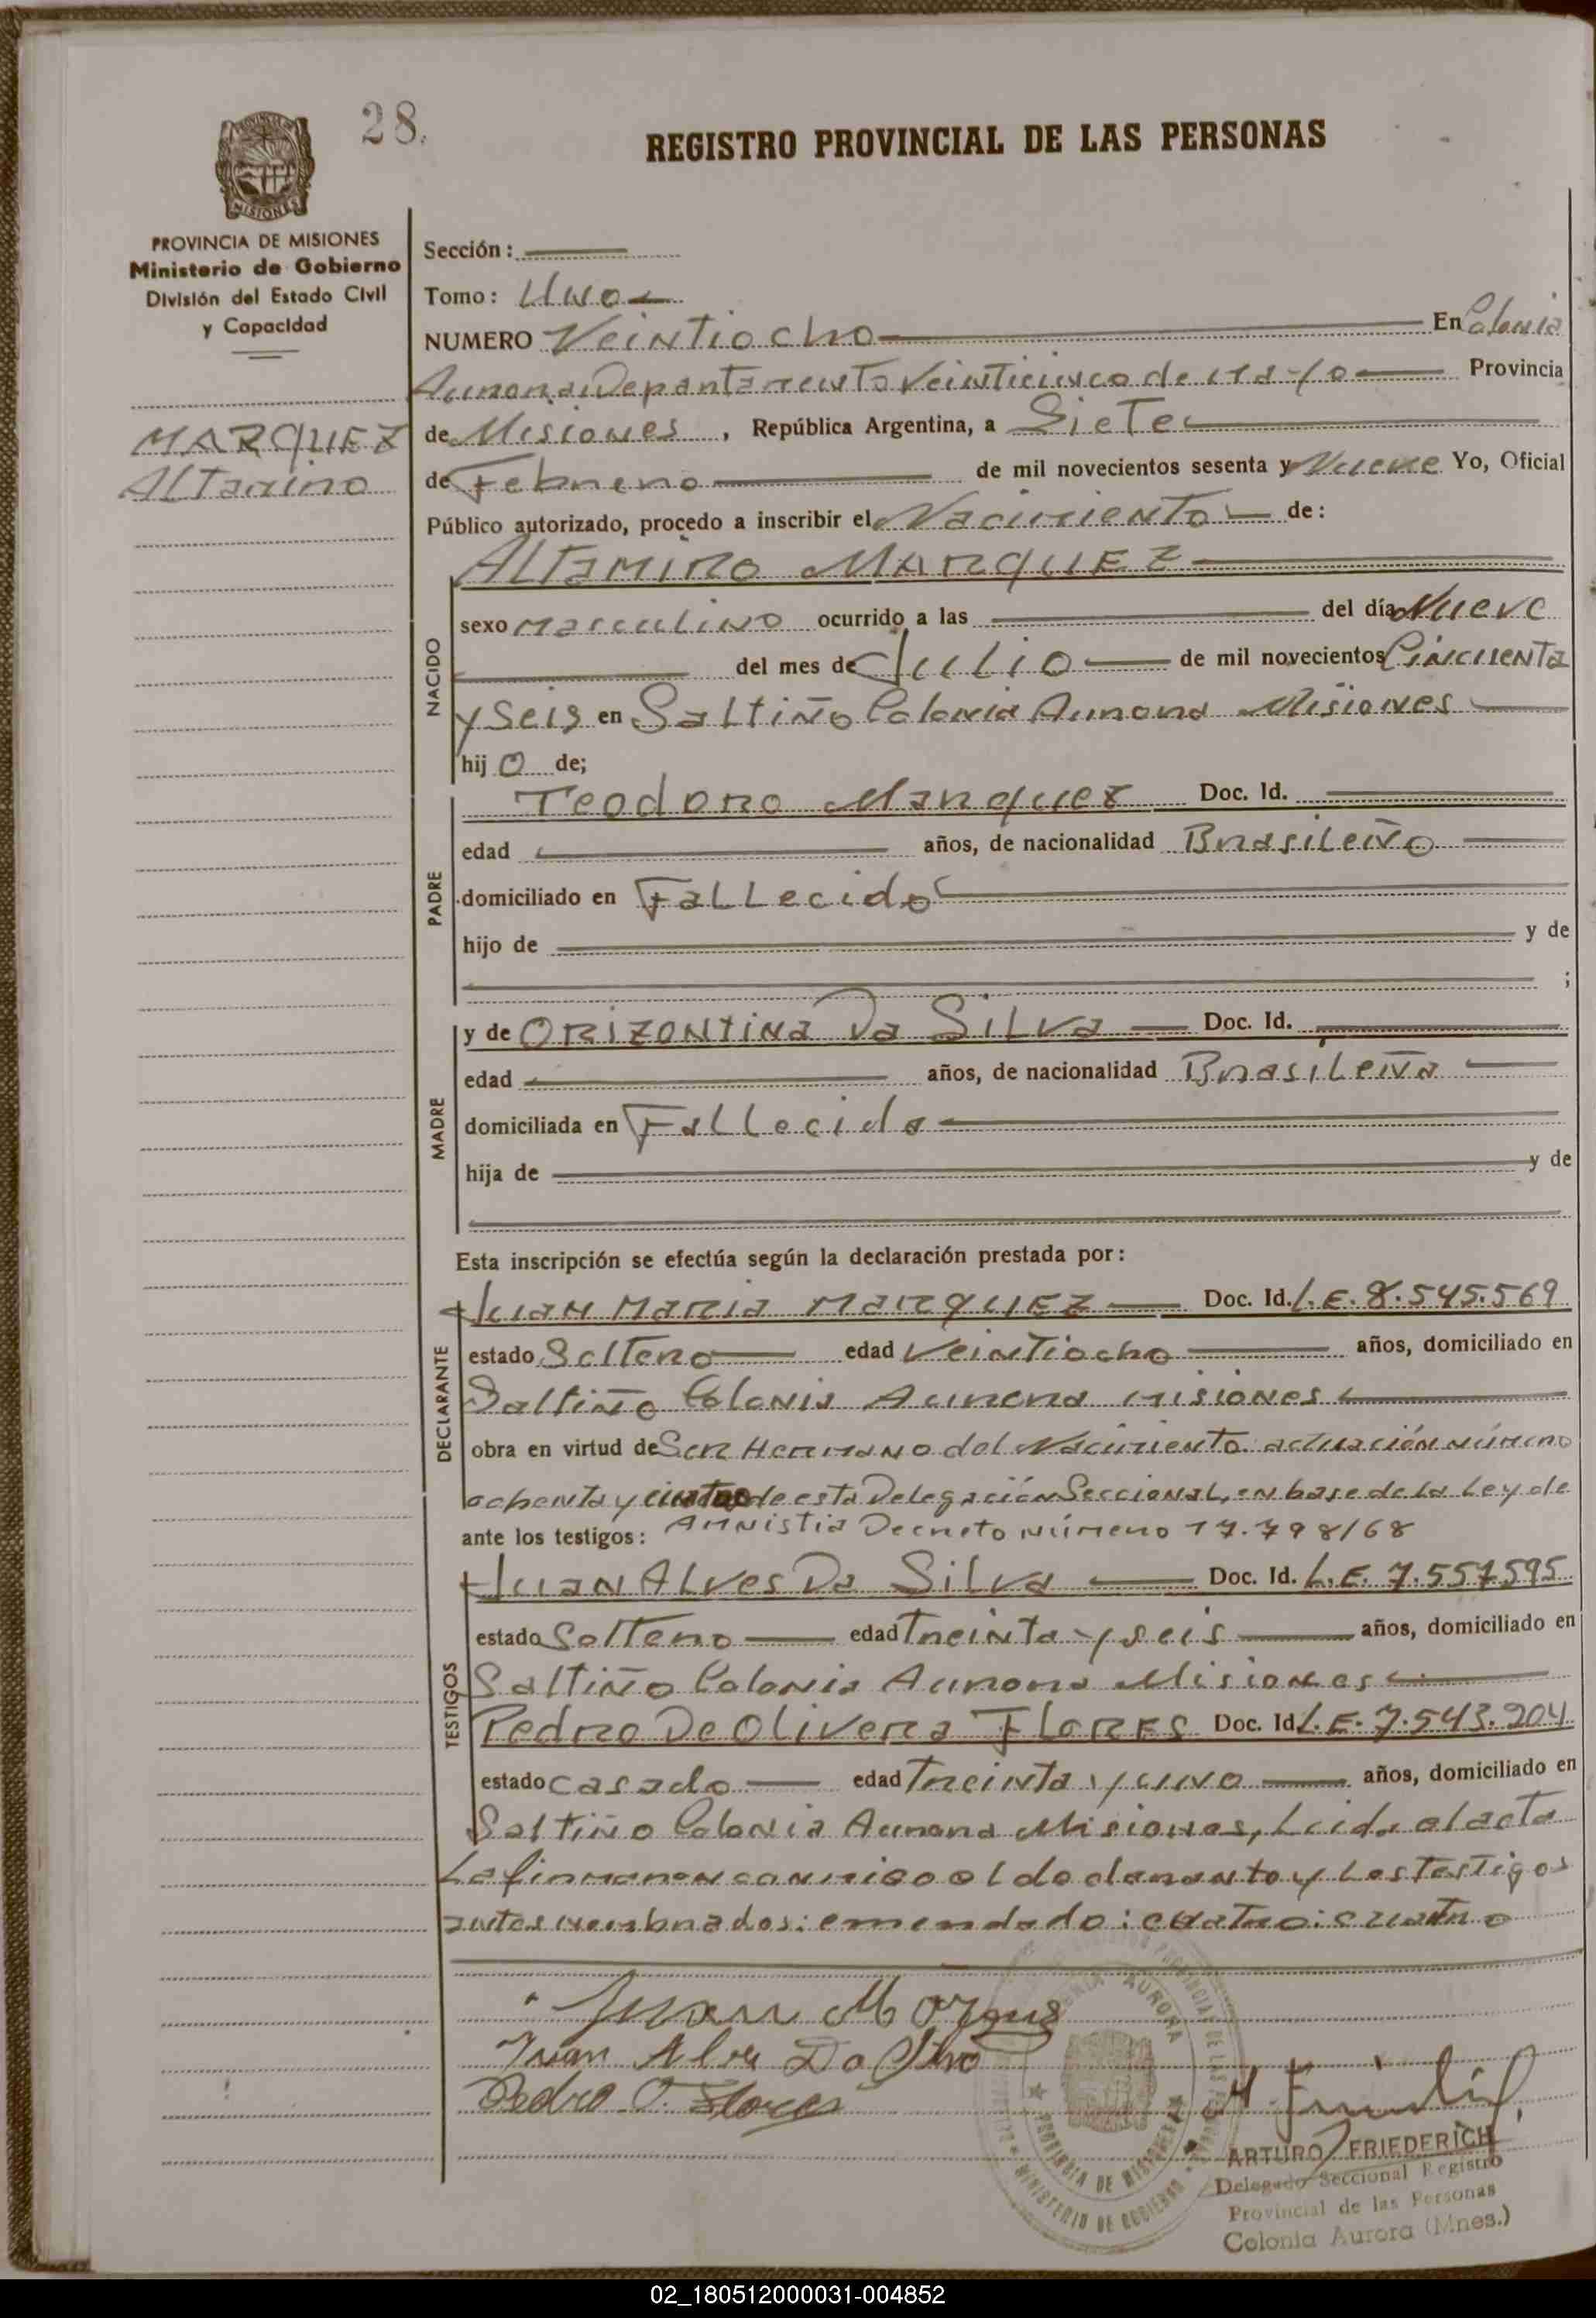 28.
REGISTRO PROVINCIAL DE LAS PERSONAS
PROVINCIA DE MISIONES
Ministerio de Gobierno
División del Estado Civil
y Capacidad
MARQUEZ
Altamiro
Sección:
Tomo: Uno
NUMERO Veintiocho En Colonia
Aurora Departamento Veinticinco de mayo Provincia
de Misiones, República Argentina, a Siete
de Febrero de mil novecientos sesenta y Nueve Yo, Oficial
Público autorizado, procedo a inscribir el Nacimiento de:
ALTAMIRO MARQUEZ
NACIDO
sexo masculino ocurrido a las del día Nueve
del mes de Julio de mil novecientos Cincuenta
y Seis en Saltiño Colonia Aurora Misiones
hijo de;
PADRE
Teodoro Marquez Doc. Id.
edad años, de nacionalidad Brasileño
domiciliado en Fallecido
hijo de y de
;
MADRE
y de ORIZONTINA Da SiLVa Doc. Id.
edad años, de nacionalidad Brasileña
domiciliada en Fallecida
hija de y de
Esta inscripción se efectúa según la declaración prestada por:
DECLARANTE
Juan Maria MarQUEZ Doc. Id. L.E. 8.545.569
estado Soltero edad Veintiocho años, domiciliado en
Saltiño Colonia Aurora Misiones
obra en virtud de Ser Hermano del Nacimiento actuación número
ochenta y cuatro de esta Delegación Seccional, en base de la Ley de
ante los testigos: Amnistia Decreto número 17.798/68
TESTIGOS
Juan Alves Da Silva Doc. Id. L.E. 7.557.595
estado Soltero edad Treinta y seis años, domiciliado en
Saltiño Colonia Aurora Misiones
Pedro De Olivera FLORES Doc. Id. L.E. 7.543.204
estado casado edad Treinta y uno años, domiciliado en
Saltiño Colonia Aurora Misiones, Leida el acta
La firmaron conmigo el declarante y los Testigos
antes nombrados: emendado: cuatro: cuatro
Juan Marques
Juan Alves Da Silva
Pedro O. Flores
AURORA
PROVINCIA DE MISIONES
MINISTERIO DE GOBIERNO
ARTURO FRIEDERICH
Delegado Seccional Registro
Provincial de las Personas
Colonia Aurora (Mnes.)
02_180512000031-004852